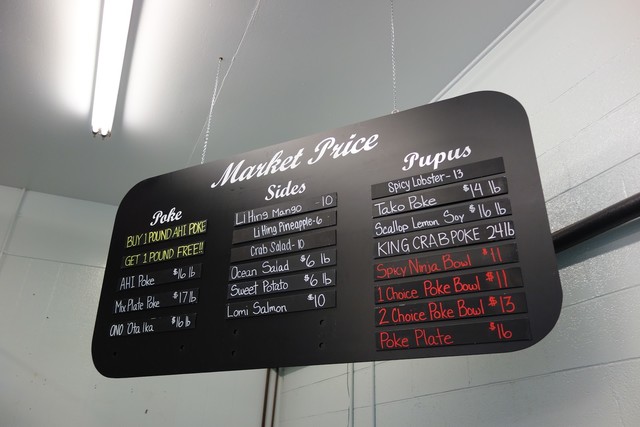 Market Price
Poke
BUY 1 POUND AHI POKE
GET 1 POUND FREE!!
AHI Poke $16 lb
Mix Plate Poke $17 lb
ONO 'Ota Ika $16 lb
Sides
Li Hing Mango - 10
Li Hing Pineapple - 6
Crab Salad - 10
Ocean Salad $6 lb
Sweet Potato $6 lb
Lomi Salmon $10
Pupus
Spicy Lobster - 13
Tako Poke $14 lb
Scallop Lemon Soy $16 lb
KING CRAB POKE 24 lb
Spicy Ninja Bowl $11
1 Choice Poke Bowl $11
2 Choice Poke Bowl $13
Poke Plate $16